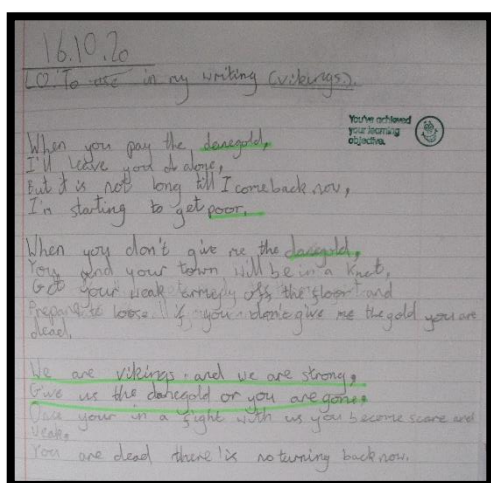 16.10.20
LO: To use in my writing (vikings).
You've achieved
your learning
objective.
When you pay the danegold,
I'll leave you alone,
But it is not long till I come back now,
I'm starting to get poor.
When you don't give me the danegold,
You and your town will be in a knet,
Get your weak army off the floor and
Prepare to loose. If you don't give me the gold you are
dead.
We are vikings and we are strong,
Give us the danegold or you are gone,
Once your in a fight with us you become scare and
weak,
You are dead there is no turning back now.